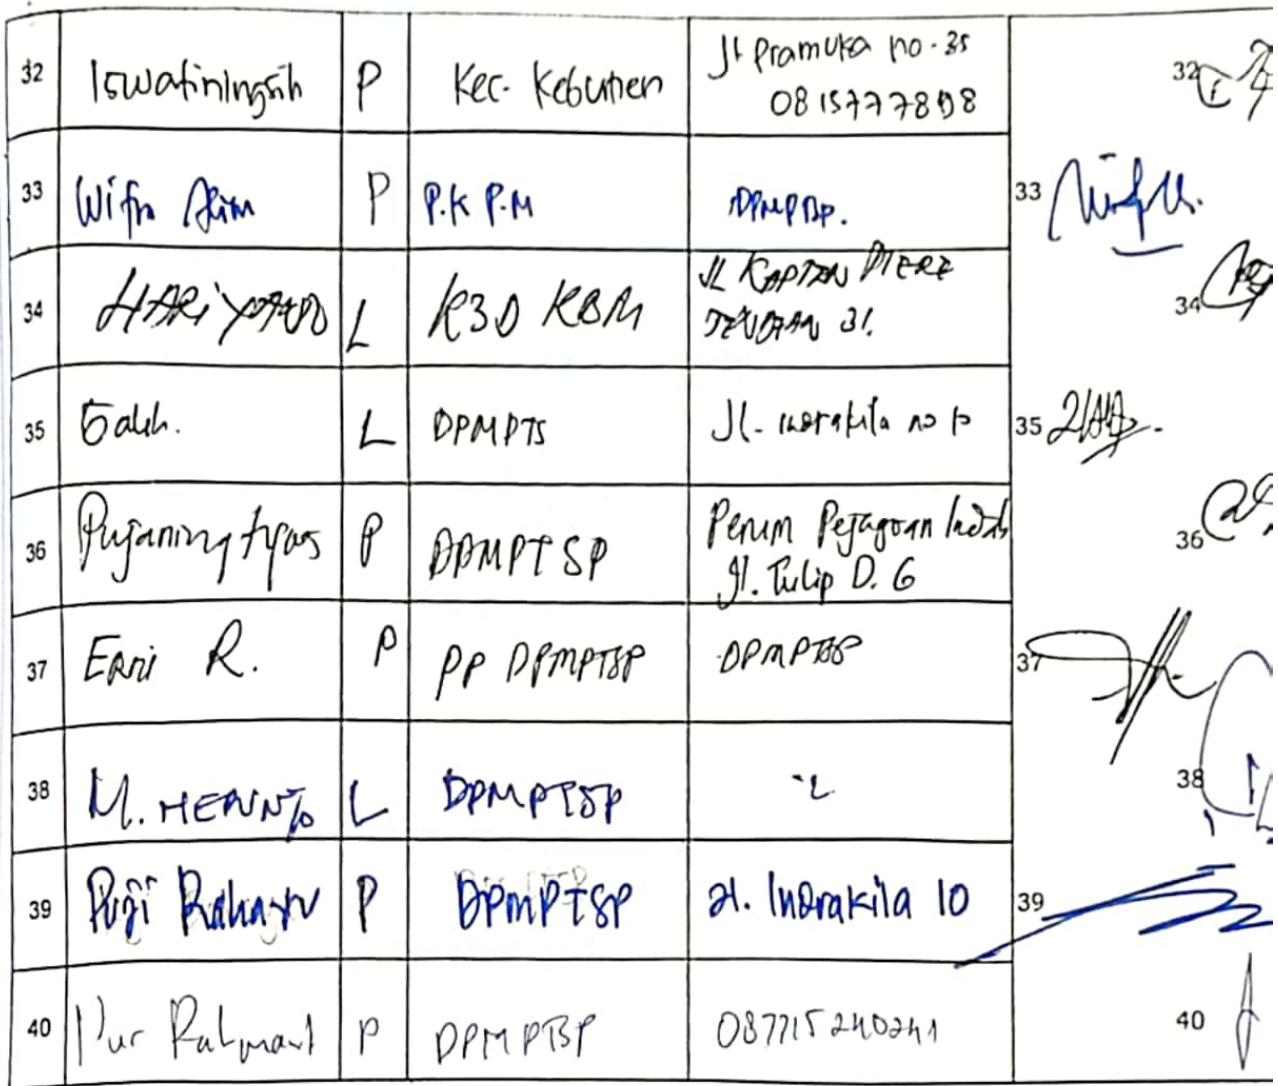 32 Iswatiningsih P Kec. Kebumen Jl Pramuka no. 35 32
08157777898
33 Wifra P P.K P.M 33
34 HARIYANTO L K3D KBM JL KAPTEN PIERE 34
TENDEAN 31.
35 Galih. L DPMPTS Jl. Indrakila no 10 35
36 Pujaningtyas P DPMPTSP Perum Pejagoan Indah 36
Jl. Tulip D. 6
37 Erni R. P PP DPMPTSP DPMPTSP 37
38 M. HERNI L DPMPTSP 38
39 Puji Rahayu P DPMPTSP Jl. Indrakila 10 39
40 Nur Rahmawati P DPMPTSP 087715240241 40